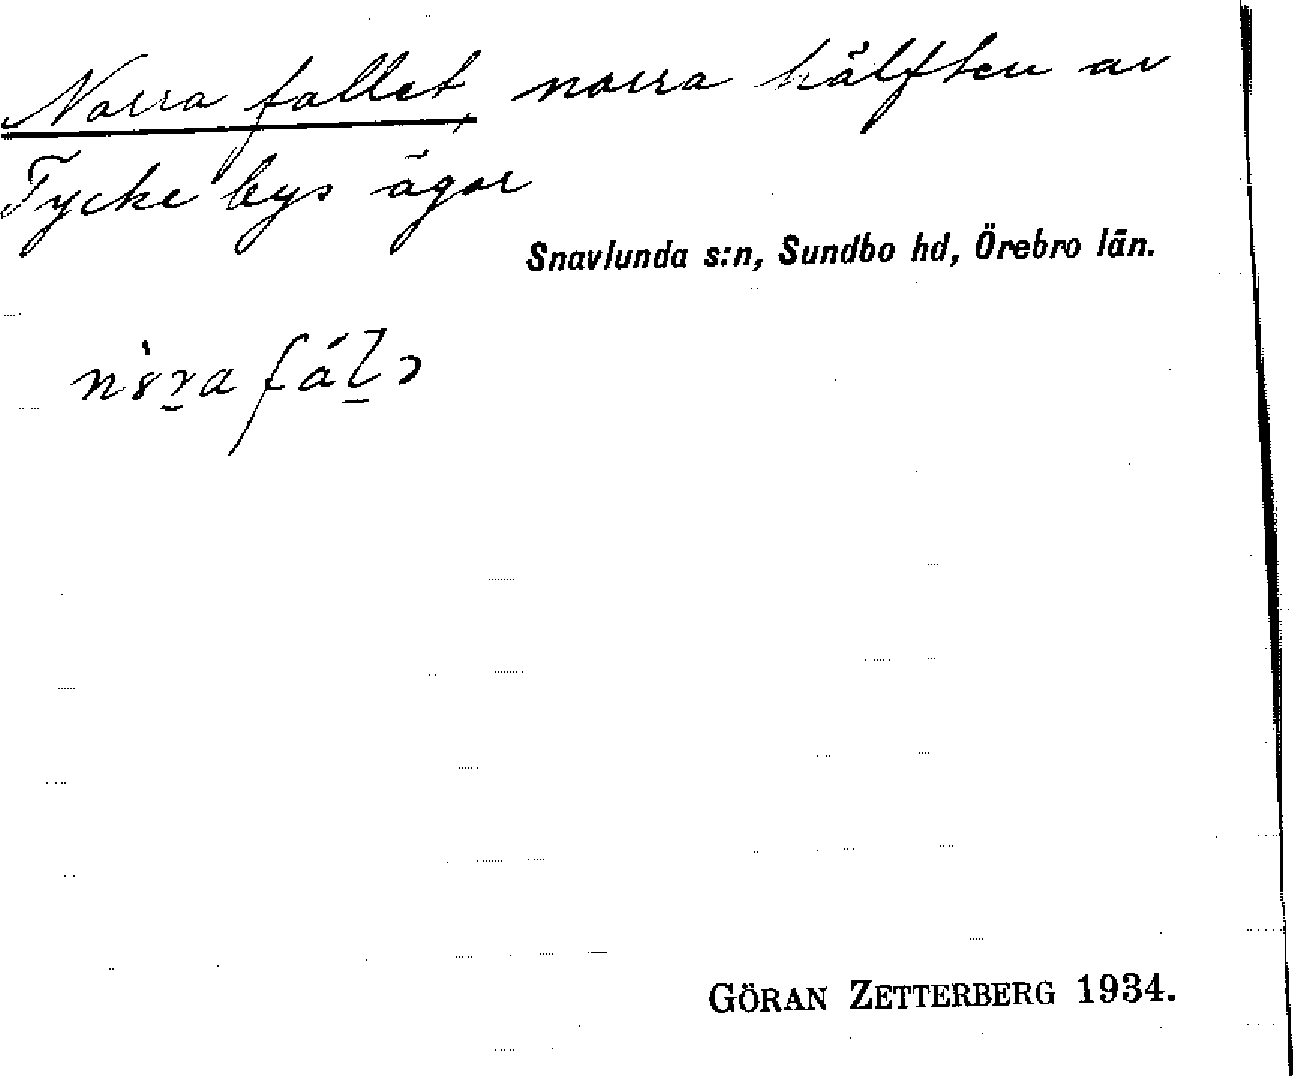 Norra fallet, norra hälften av
Tycke bys ägor
Snavlunda s:n, Sundbo hd, Örebro län.
GÖRAN ZETTERBERG 1934.